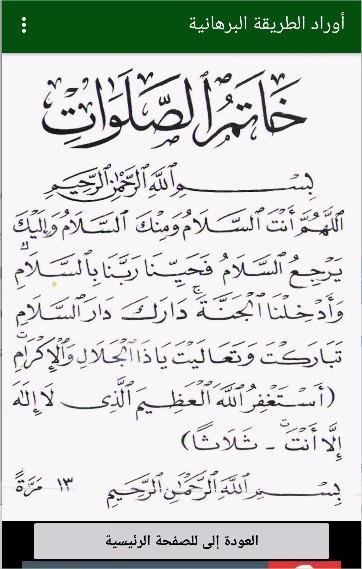 أوراد الطريقة البرهانية
خَاتَمُ الصَّلَوَاتِ
بِسْـــمِ اللَّهِ الرَّحْمَنِ الرَّحِيمِ
اللَّهُمَّ أَنْتَ السَّلَامُ وَمِنْكَ السَّلَامُ وَإِلَيْكَ
يَرْجِعُ السَّلَامُ فَحَيِّنَا رَبَّنَا بِالسَّلَامِ
وَأَدْخِلْنَا الْجَنَّةَ دَارَكَ دَارَ السَّلَامِ
تَبَارَكْتَ وَتَعَالَيْتَ يَاذَا الْجَلَالِ وَالْإِكْرَامِ
(أَسْتَغْفِرُ اللَّهَ الْعَظِيمَ الَّذِى لَا إِلَهَ
إِلَّا أَنْتَ - ثَلَاثًا)
بِسْـــمِ اللَّهِ الرَّحْمَنِ الرَّحِيمِ ١٣ مَرَّةً
العودة إلى للصفحة الرئيسية